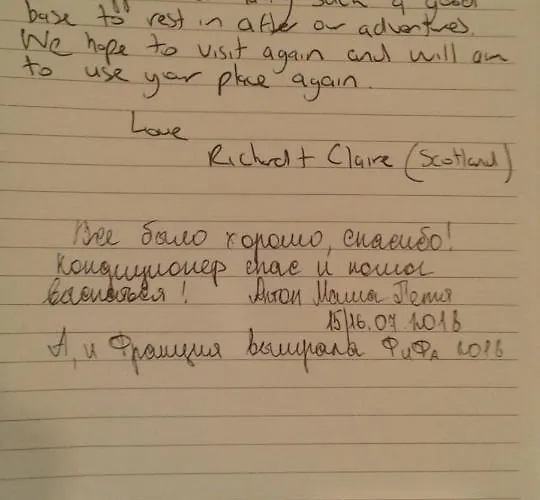 such a good
base to rest in after our adventures.
We hope to visit again and will aim
to use your place again.
Love
Richard + Claire (Scotland)
Все было хорошо, спасибо!
Кондиционер спас и помог
выспаться! Антон Маша Петя
15/16.07.2018
А, и Франция выиграла ФиФА 2018